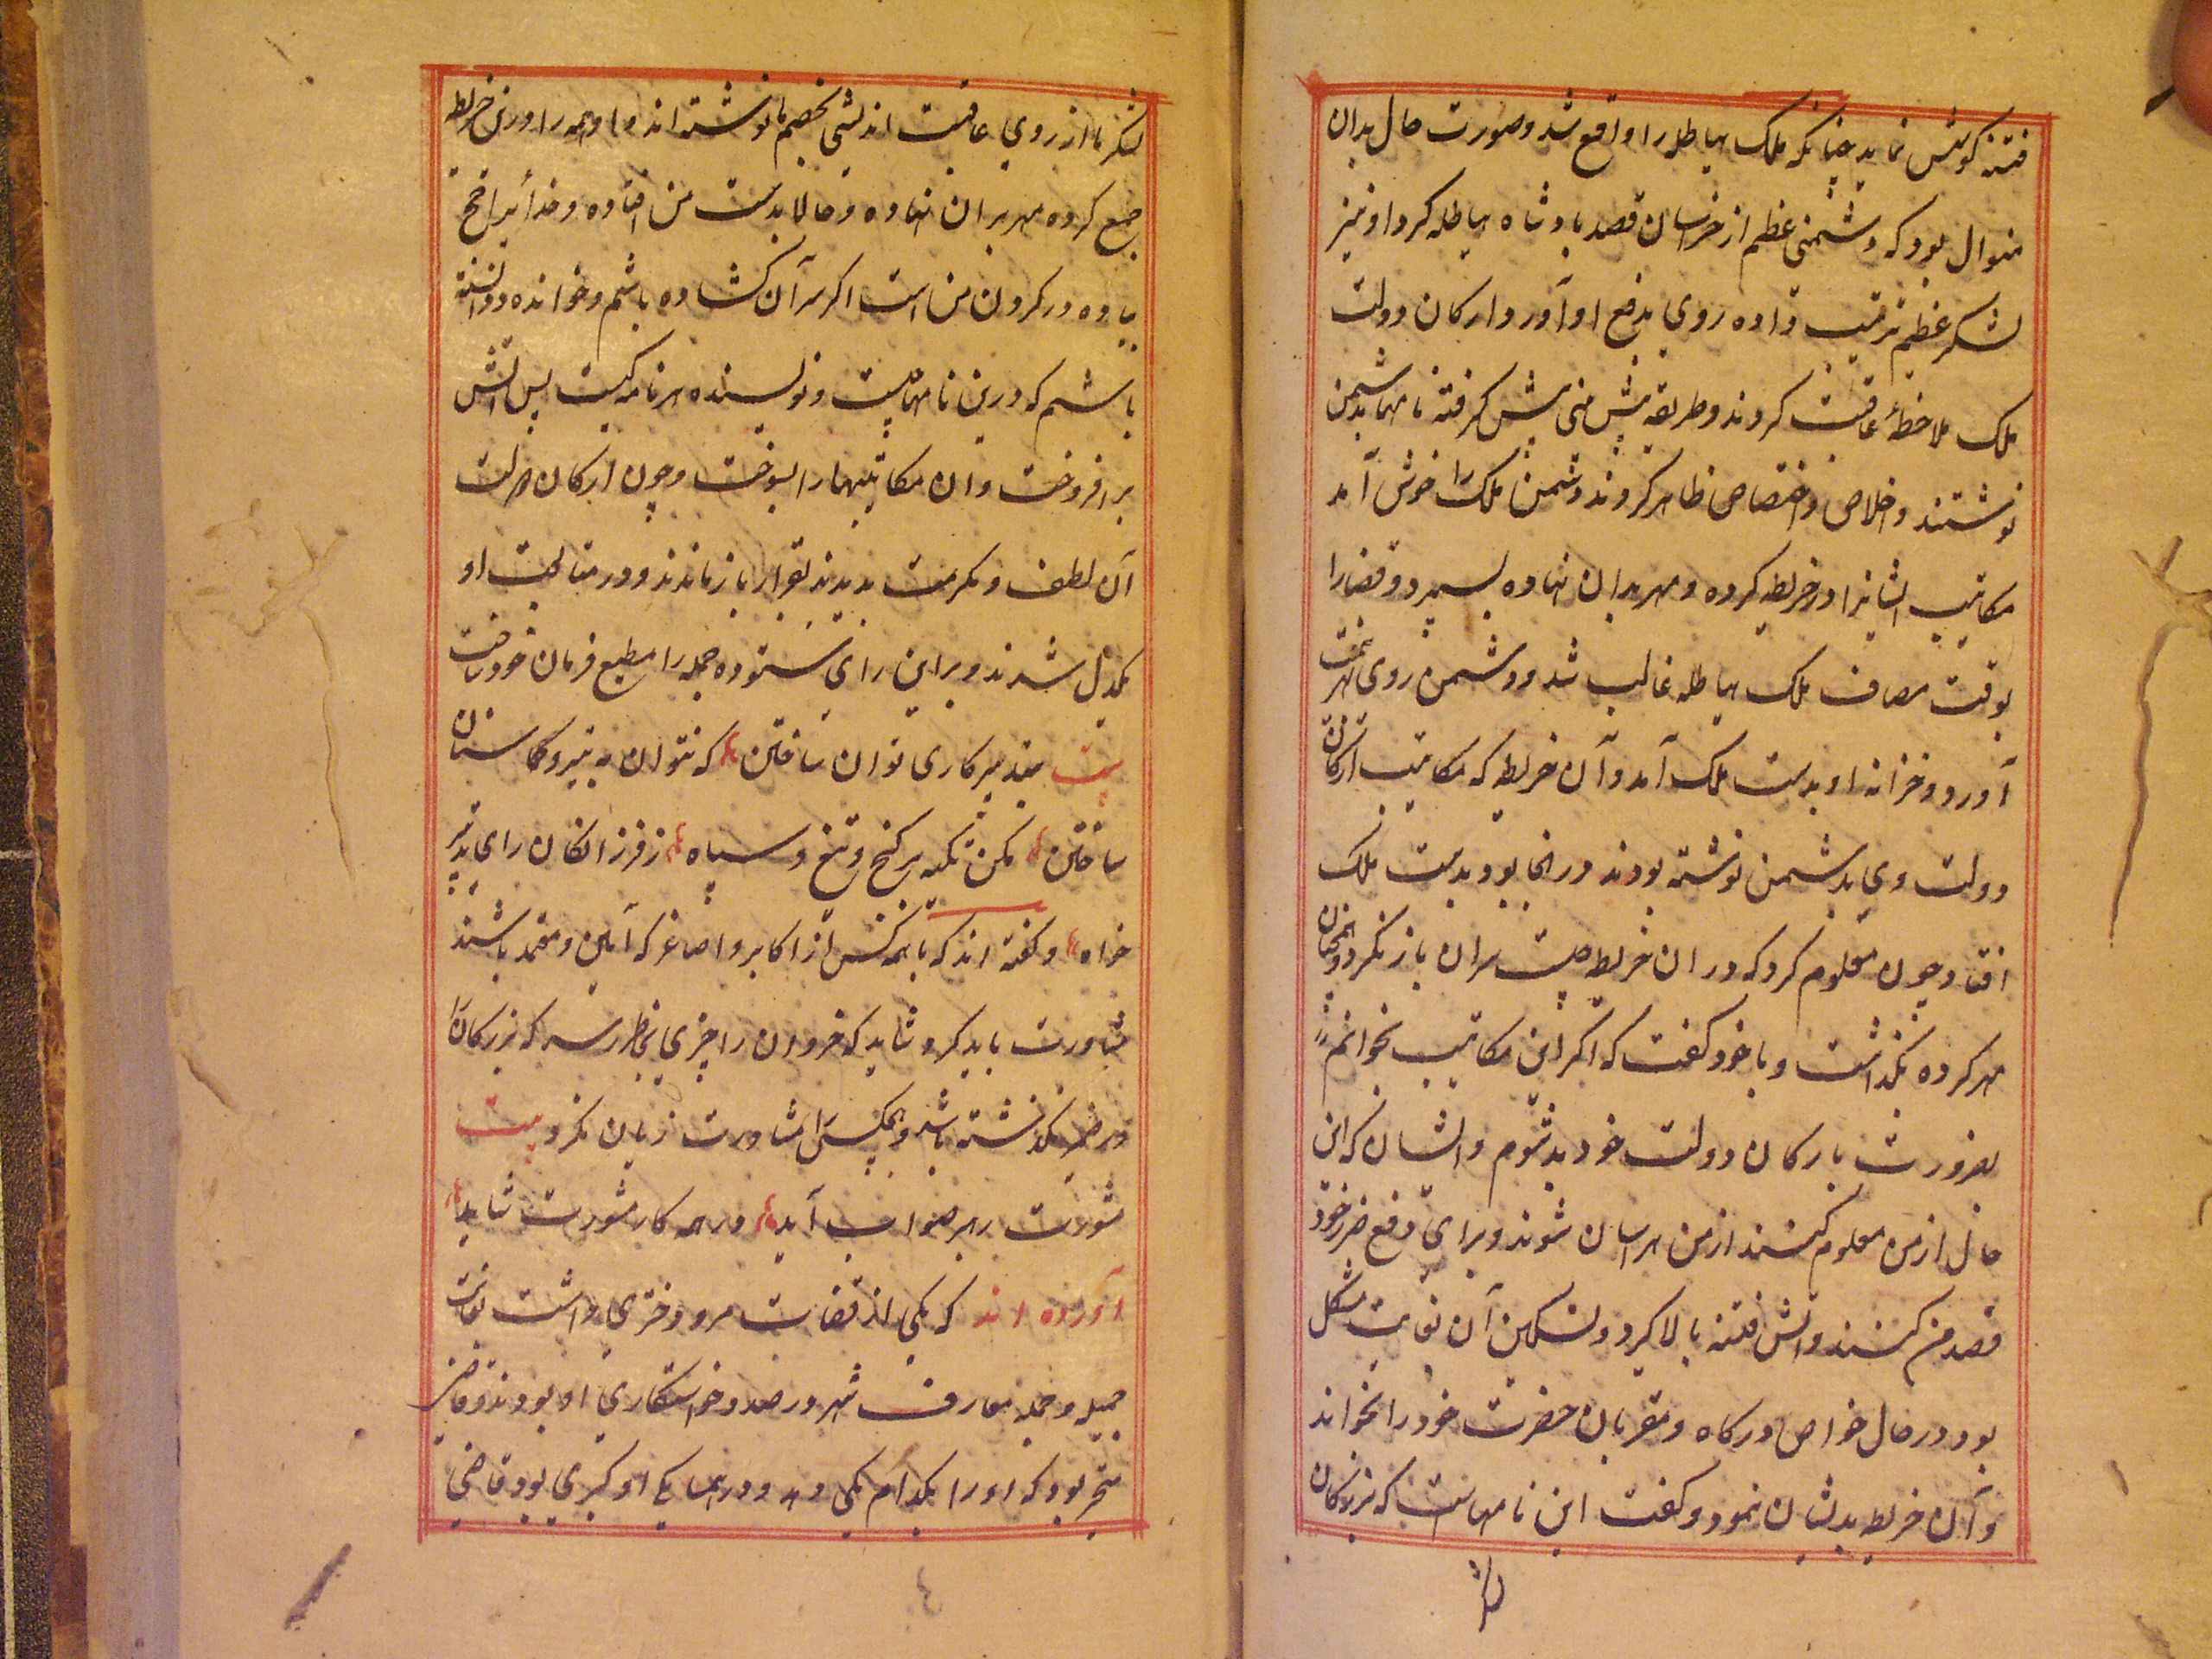 فتنه کوشش نماید چنانکه ملک هیاطله را واقع شد و صورت حال بدان
منوال بود که دشمنی عظیم از خراسان قصد بادشاه هیاطله کرد او نیز
لشکر عظیم ترتیب داده روی بدفع او آورد ارکان دولت
ملک ملاحظهٔ عاقبت کردند و طریقه پیش بینی پیش کرفته نامهها بدشمن
نوشتند و اخلاص و اختصاص ظاهر کردند دشمن ملک را خوش آمد
مکاتیب ایشانرا در خریطه کرده و مهر بران نهاده بسپرد و قضا را
بوقت مصاف ملک هیاطله غالب شد و دشمن روی بهزیمت
آورد و خزانه او بدست ملک آمد و آن خریطه که مکاتیب ارکان
دولت وی بدشمن نوشته بودند در انجا بود بدست ملک
افتاد چون معلوم کرد که در ان خریطه چیست سر ان باز نکرد و همچنان
مهر کرده بگذاشت و با خود کفت که اکر این مکاتیب بخوانم
بضرورت با ارکان دولت خود بد شوم و ایشان که این
حال از من معلوم کنند از من هراسان شوند و برای دفع ضرر خود
قصد من کنند و آتش فتنه بالا کیرد و تسکین آن بغایت مشکل
بود در حال خواص درکاه و مقربان حضرت خود را بخواند
و آن خریطه بدیشان نمود و کفت این نامهاست که بزرکان
لشکر ما از روی عاقبت اندیشی بخصم ما نوشته اند و او همه را در این خریطه
جمع کرده مهر بران نهاده و حالا بدست من افتاده و خدا بیزار
پیاده در کردن من است اکر سر آن کشاده باشم و خوانده و دانسته
باشم که درین نامها چیست و نویسنده هر نامه کیست پس آتش
برافروخت و ان مکاتیبها را بسوخت و چون ارکان دولت
آن لطف و مکرمت بدیدند بقرار باز ماندند و در متابعت او
یکدل شدند و براین رای ستوده جمله را مطیع فرمان خود ساخت
بیت بتدبیر کاری توان ساختن که نتوان به تیر و کمان
ساختن مکن تکیه بر کنج و تیغ و سپاه ز فرزانکان رای و تدبیر
خواه و کفته اند که با همه کس از اکابر و اصاغر که آمین و معتمد باشند
مشاورت باید کرد شاید که خردان را چیزی بخاطر رسد که بزرکان را
در ضمیر نکذشته باشد و هیچکس را مشاورت زیان نکرد بیت
مشورت رهبر صواب آید در همه کار مشورت شاید
آورده اند که یکی از قضات مرو دختری داشت بغایت
جمیله و جمله معارف شهر در صدد خواستکاری او بودند و قاضی
متحیر بود که او را بکدام یکی دهد و در همسایکی او کبری بود قاضی